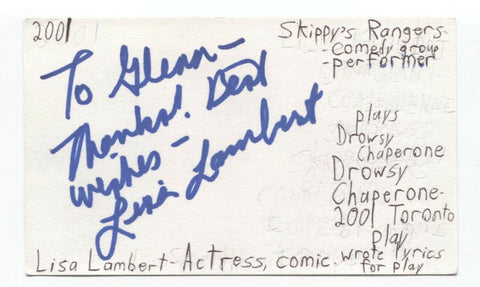 2001
To Glenn-
Thanks! Best
wishes-
Lisa Lambert
Skippy's Rangers-
-comedy group
-performer
plays
Drowsy
Chaperone
Drowsy
Chaperone-
2001 Toronto
play
wrote lyrics
for play
Lisa Lambert- Actress, comic